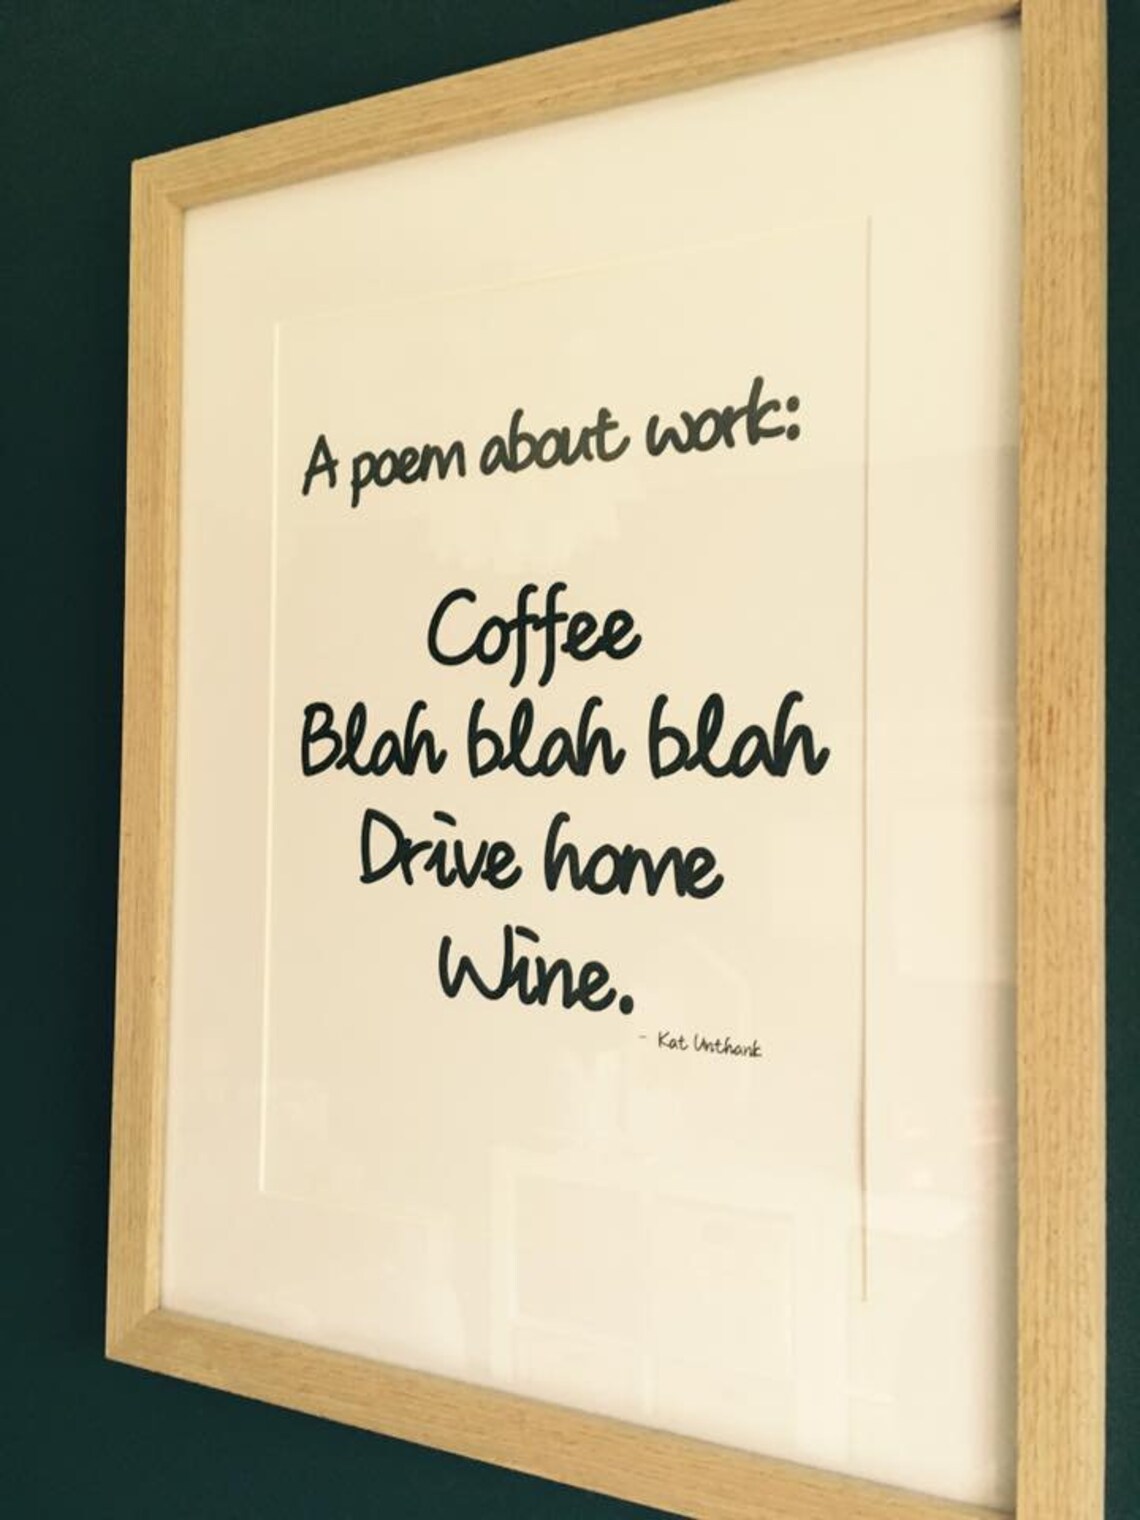 A poem about work:
Coffee
Blah blah blah
Drive home
Wine.
- Kat Unthank